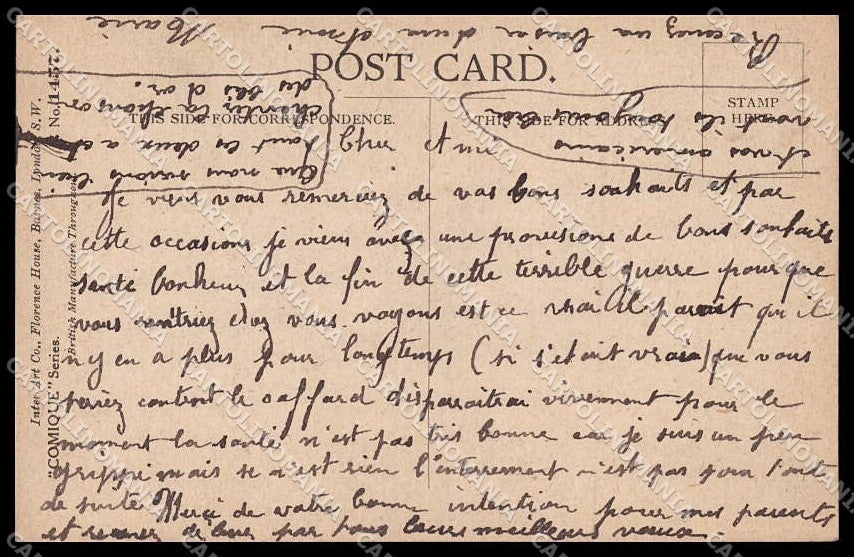 POST CARD.
THIS SIDE FOR CORRESPONDENCE.
THIS SIDE FOR ADDRESS
STAMP
HERE
Cher Ami
Je viens vous remerciez de vos bons souhaits et par
cette occasions je viens avec une provisions de bons souhaits
santé bonheur et la fin de cette terrible guerre pour que
vous rentriez chez vous. voyons est ce vrai il parait qu'il
n'y en a plus pour longtemps (si s'etait vraie) que vous
seriez contont le caffard disparaitrai vivement pour le
moment la santé n'est pas très bonne car je suis un peu
grippé mais se n'est rien l'enterrement n'est pas pour toute
de suite Merci de votre bonne intention pour mes parents
et recevez de leur par tous leurs meilleurs vœux
Recevez un baiser d'une amie
Marie
et vos americains
vont ils
Que nous
tout les deux a
chanter la chanson
des blés d'or.
Inter-Art Co., Florence House, Barnes, London, S.W.
British Manufacture Throughout
"COMIQUE" Series.
No. 1457.
CARTOLINOMANIA